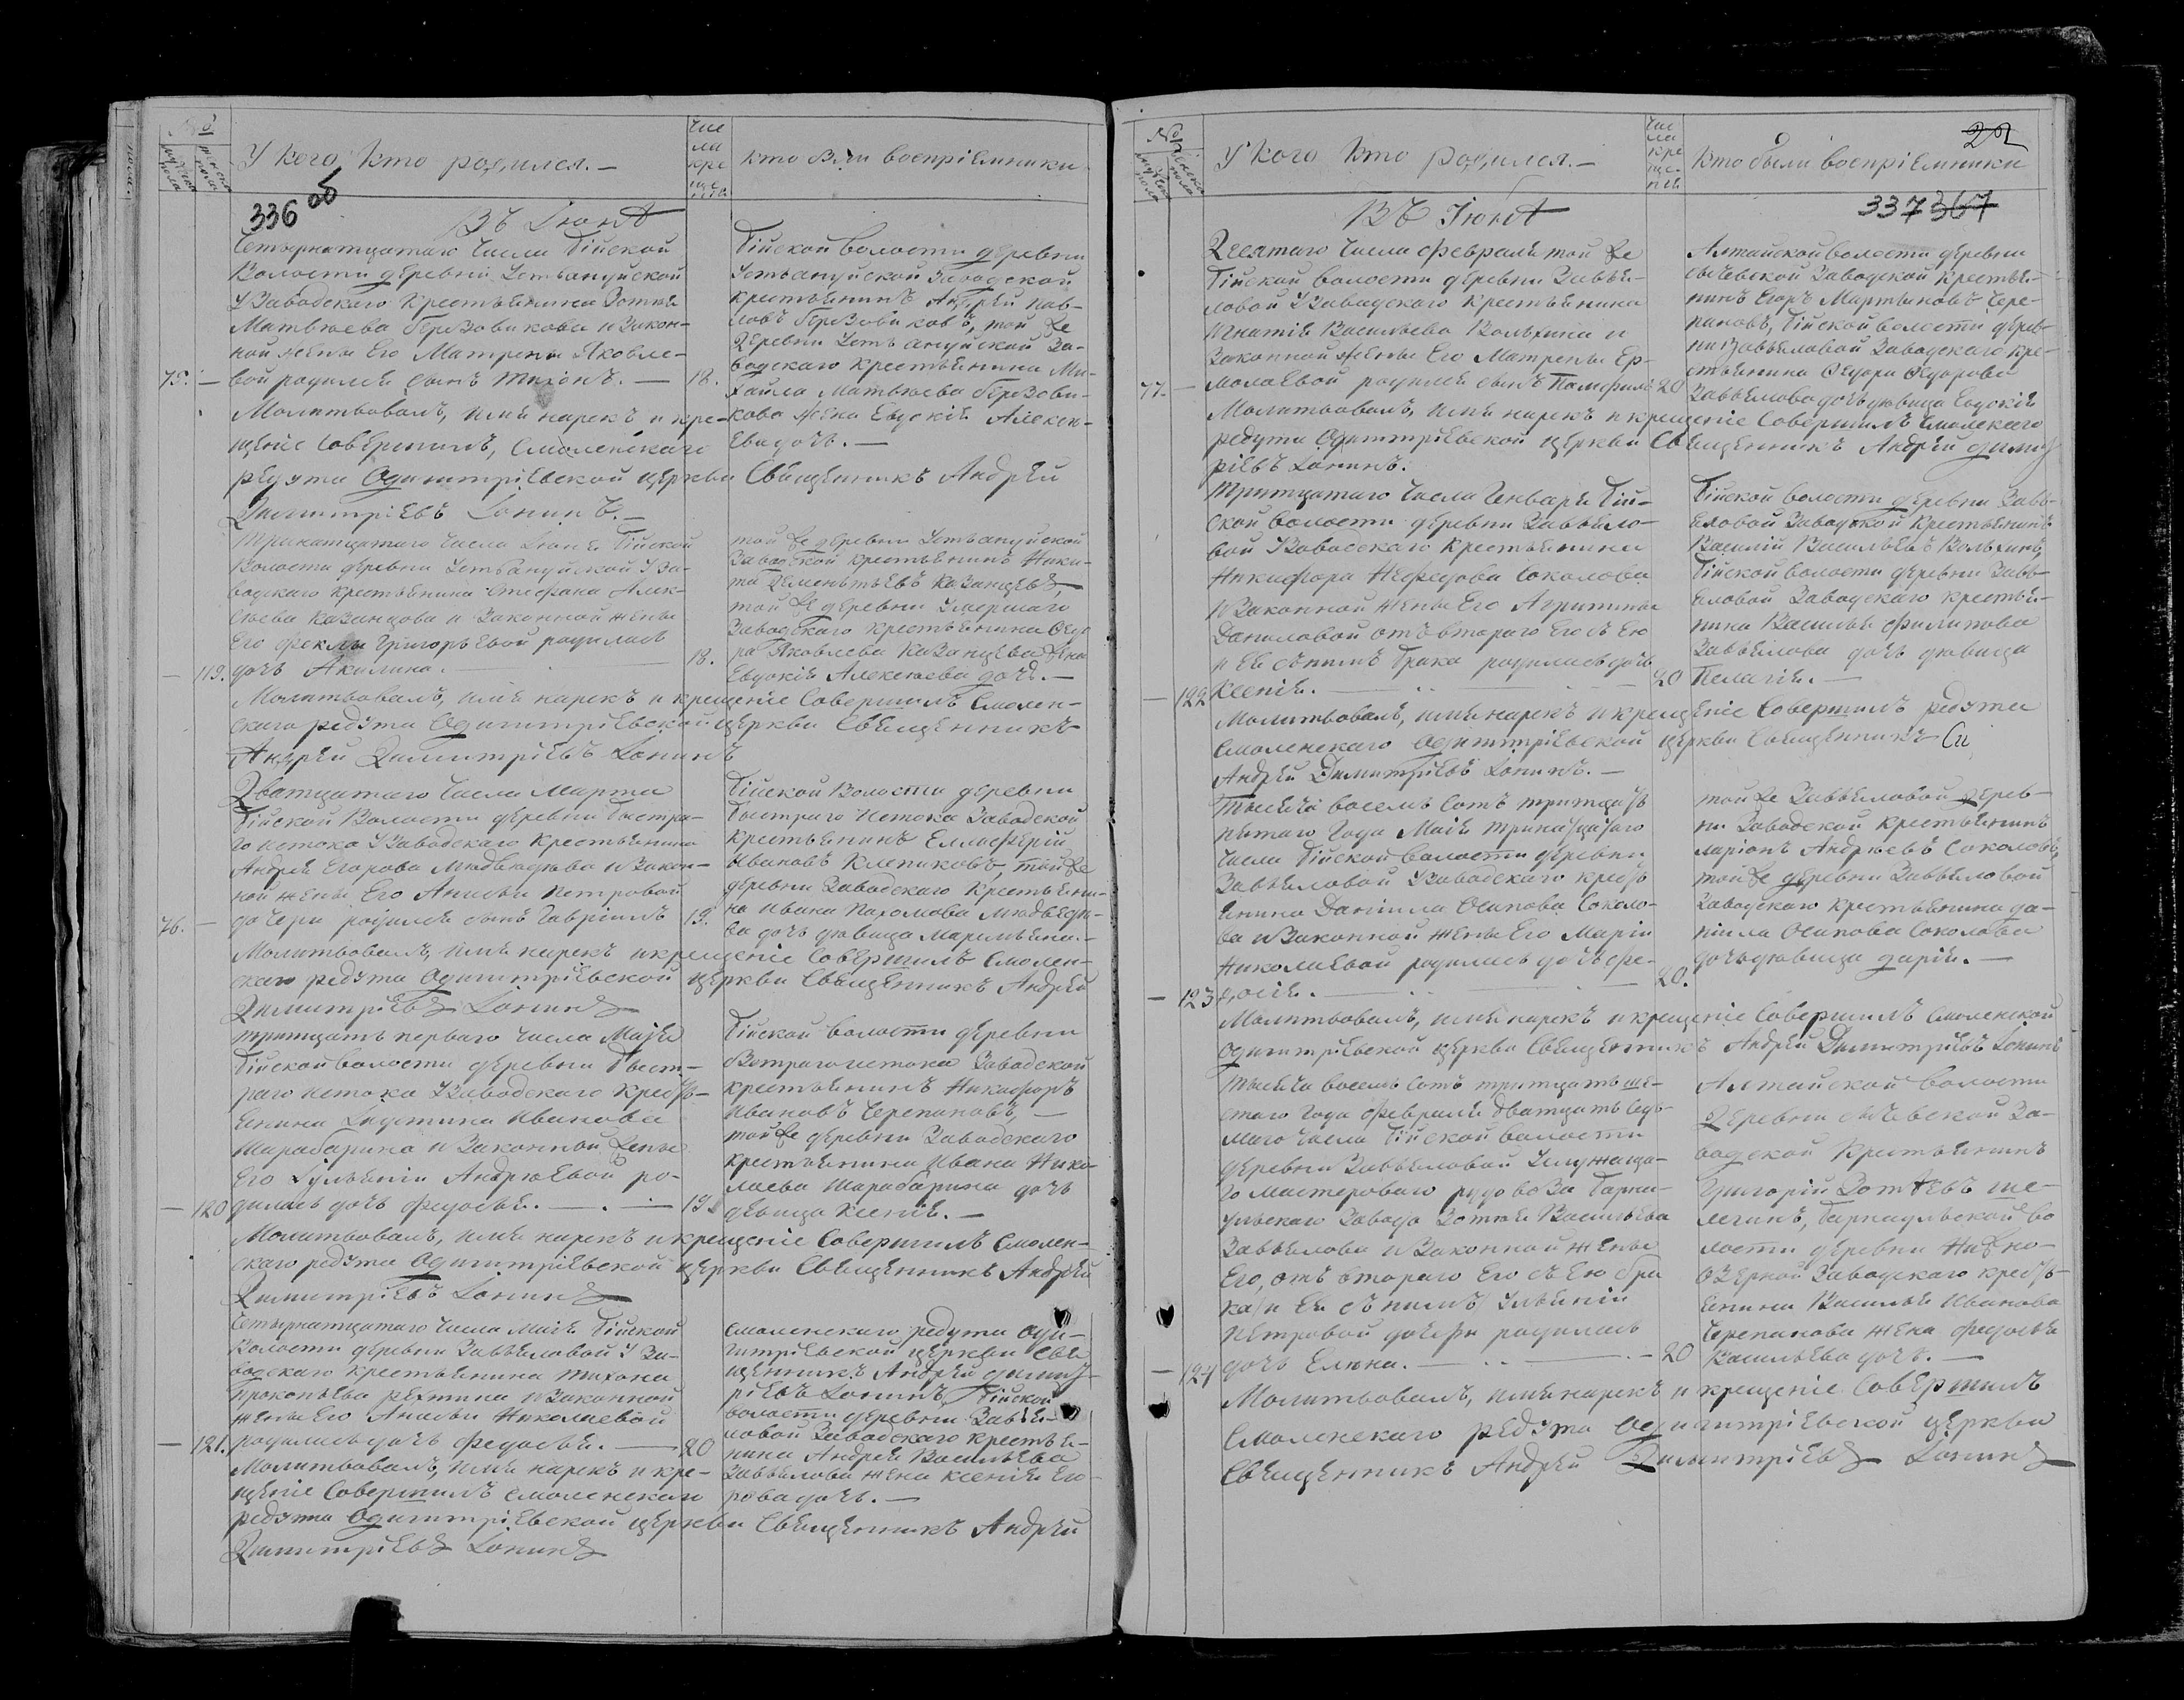 №
мужеска пола
женска пола
У кого, кто родился. —
Чис
ла
кре
ще
нія
кто были воспріемники.
336 об
Въ Іюнѣ
Четырнатцатаго числа Бійской
Волости деревни Устьануйской
У Заводскаго крестьянина Зотея
Матвѣева Березовикова и закон-
ной жены Его Матрены Яковле-
75. — вой родился сынъ Тихонъ. — 18.
Молитвовалъ, имя нарекъ и кре-
щеніе Совершилъ, Смоленскаго
редута Одигитріевской церкви Священникъ Андрей
Димитріевъ Лонинъ. —
Бійской Волости деревни
Устьануйской Заводской
крестьянинъ Андрей Пав-
ловъ Березовиковъ, той же
деревни Устьануйской За-
водскаго крестьянина Ми-
хайла Матвѣева Березови-
кова жена Евдокія Алексѣ-
ева дочь. —
Тринатцатаго числа Іюня Бійской
Волости деревни Устьануйской У За-
водскаго крестьянина Стефана Алек-
сѣева Казанцова и законной жены
Его Феклы Григорьевой родилась
— 119. дочь Акилина. — 18.
Молитвовалъ, имя нарекъ и крещеніе Совершилъ Смолен-
скаго редута Одигитріевской церкви Священникъ
Андрей Димитріевъ Лонинъ
той же деревни Устьануйской
Заводской крестьянинъ Ники-
та Дементьевъ Казанцевъ,
той же деревни Умершаго
Заводскаго крестьянина Ѳедо
ра Яковлева Казанцева жена
Евдокія Алексѣева дочь. —
Дватцатаго числа Марта
Бійской Волости деревни Быстра-
го истока У Заводскаго крестьянина
Андрея Егорова Мѣдведѣва и закон-
ной жены Его Анисьи Петровой
76. — дочери родился сынъ Гавріилъ 19.
Молитвовалъ, имя нарекъ и крещеніе Совершилъ Смолен-
скаго редута Одигитріевской церкви Священникъ Андрей
Димитріевъ Лонинъ
Бійской Волости деревни
Быстраго Истока Заводской
крестьянинъ Елеоферій
Ивановъ Клепиковъ, той же
деревни Заводскаго крестьяни-
на Ивана Пахомова Мѣдведѣ-
ва дочь дѣвица Маремьяна. —
Тритцать перваго числа Маія
Бійской волости деревни Быст-
раго истока У Заводскаго кресть-
янина Ивана
Шарабарина и законной жены
Его Андрѣевой ро-
— 120 дилась дочь Федосья. — 19
Молитвовалъ, имя нарекъ и крещеніе Совершилъ Смолен-
скаго редута Одигитріевской церкви Священникъ Андрей
Димитріевъ Лонинъ
Бійской волости деревни
Быстраго истока Заводской
крестьянинъ Никифоръ
Ивановъ Черепановъ, —
той же деревни Заводскаго
крестьянина Ивана Нико-
лаева Шарабарина дочь
дѣвица Ксенія. —
Четырнатцатаго числа Маія Бійской
Волости деревни Завьяловой У За-
водскаго крестьянина Тихона
Прокопьева Рехтина и законной
жены Его Анисьи Николаевой
— 121. родилась дочь Федосья. — 20
Молитвовалъ, имя нарекъ и кре-
щеніе Совершилъ Смоленскаго
редута Одигитріевской церкви Священникъ Андрей
Димитріевъ Лонинъ
Смоленскаго редута Оди-
гитріевской церкви Свя
щенникъ Андрей Димит-
ріевъ Лонинъ, Бійской
волости деревни Завья-
ловой Заводскаго крестья-
нина Андрея Васильева
Завьялова жена Ксенія Его-
рова дочь. —
№
мужеска пола
женска пола
У кого кто родился. —
Чис
ла
кре
ще-
нія
Кто были воспріемники
22
337 367
Въ Іюнѣ
Десятаго числа февраля той же
Бійской волости деревни Завья-
ловой У Заводскаго крестьянина
Игнатія Васильева Вольхина и
законной жены Его Матрены Ер-
77. — молаевой родился сынъ Памфилъ 20
Молитвовалъ, имя нарекъ и крещеніе Совершилъ Смоленскаго
редута Одигитріевской церкви Священникъ Андрей Димит
ріевъ Лонинъ.
Алтайской волости деревни
Сычевской Заводской крестья-
нинъ Егоръ Мартыновъ Чере-
пановъ, Бійской волости дерев-
ни Завьяловой Заводскаго кре-
стьянина Ѳедора Ѳедорова
Завьялова дочь дѣвица Евдокія
Тритцатаго числа Генваря Бій-
ской волости деревни Завьяло-
вой У Заводскаго крестьянина
Никифора Нефедова Соколова
и законной жены Его Агрипины
Даниловой отъ втораго Его съ Ею
и Ея съ нимъ брака родилась дочь
— 122 Ксенія. — 20
Молитвовалъ, имя нарекъ и крещеніе Совершилъ редута
Смоленскаго Одигитріевской церкви Священникъ
Андрей Димитріевъ Лонинъ. —
Бійской волости деревни Завь-
яловой Заводской крестьянинъ
Василій Васильевъ Вольхинъ,
Бійской волости деревни Завь-
яловой Заводскаго крестья-
нина Василья Филипова
Завьялова дочь дѣвица
Пелагія. —
Тысяча восемь сотъ тритцать
пятаго Года Маія тринатцатаго
числа Бійской волости деревни
Завьяловой У Заводскаго кресть
янина Даніила Осипова Соколо-
ва и законной жены Его Маріи
Николаевой родилась дочь Фе-
— 123 досія. — 20.
Молитвовалъ, имя нарекъ и крещеніе Совершилъ Смоленской
Одигитріевской церкви Священникъ Андрей Димитріевъ Лонинъ
той же Завьяловой дерев-
ни Заводской крестьянинъ
Ларіонъ Андрѣевъ Соколовъ,
той же деревни Завьяловой
Заводскаго крестьянина Да-
ніила Осипова Соколова
дочь дѣвица Дарія. —
Тысяча восемь сотъ тритцать ше-
стаго Года Февраля дватцать седь-
маго числа Бійской волости
деревни Завьяловой У служаща-
го мастероваго рудовоза Барна-
ульскаго Завода Зотея Васильева
Завьялова и законной жены
Его, отъ втораго Его съ Ею бра
ка и Ея съ нимъ Ульяніи
Петровой дочери родилась
— 124 дочь Елена. — 20
Молитвовалъ, имя нарекъ и крещеніе Совершилъ
Смоленскаго редута Одигитріевской церкви
Священникъ Андрей Димитріевъ Лонинъ
Алтайской волости
деревни Сычевской За-
водской крестьянинъ
Григорій Зотѣевъ Ше-
легинъ, Барнаульской во
лости деревни Нижно-
озерной Заводскаго кресть-
янина Василья Иванова
Черепанова жена Федосья
Васильева дочь. —